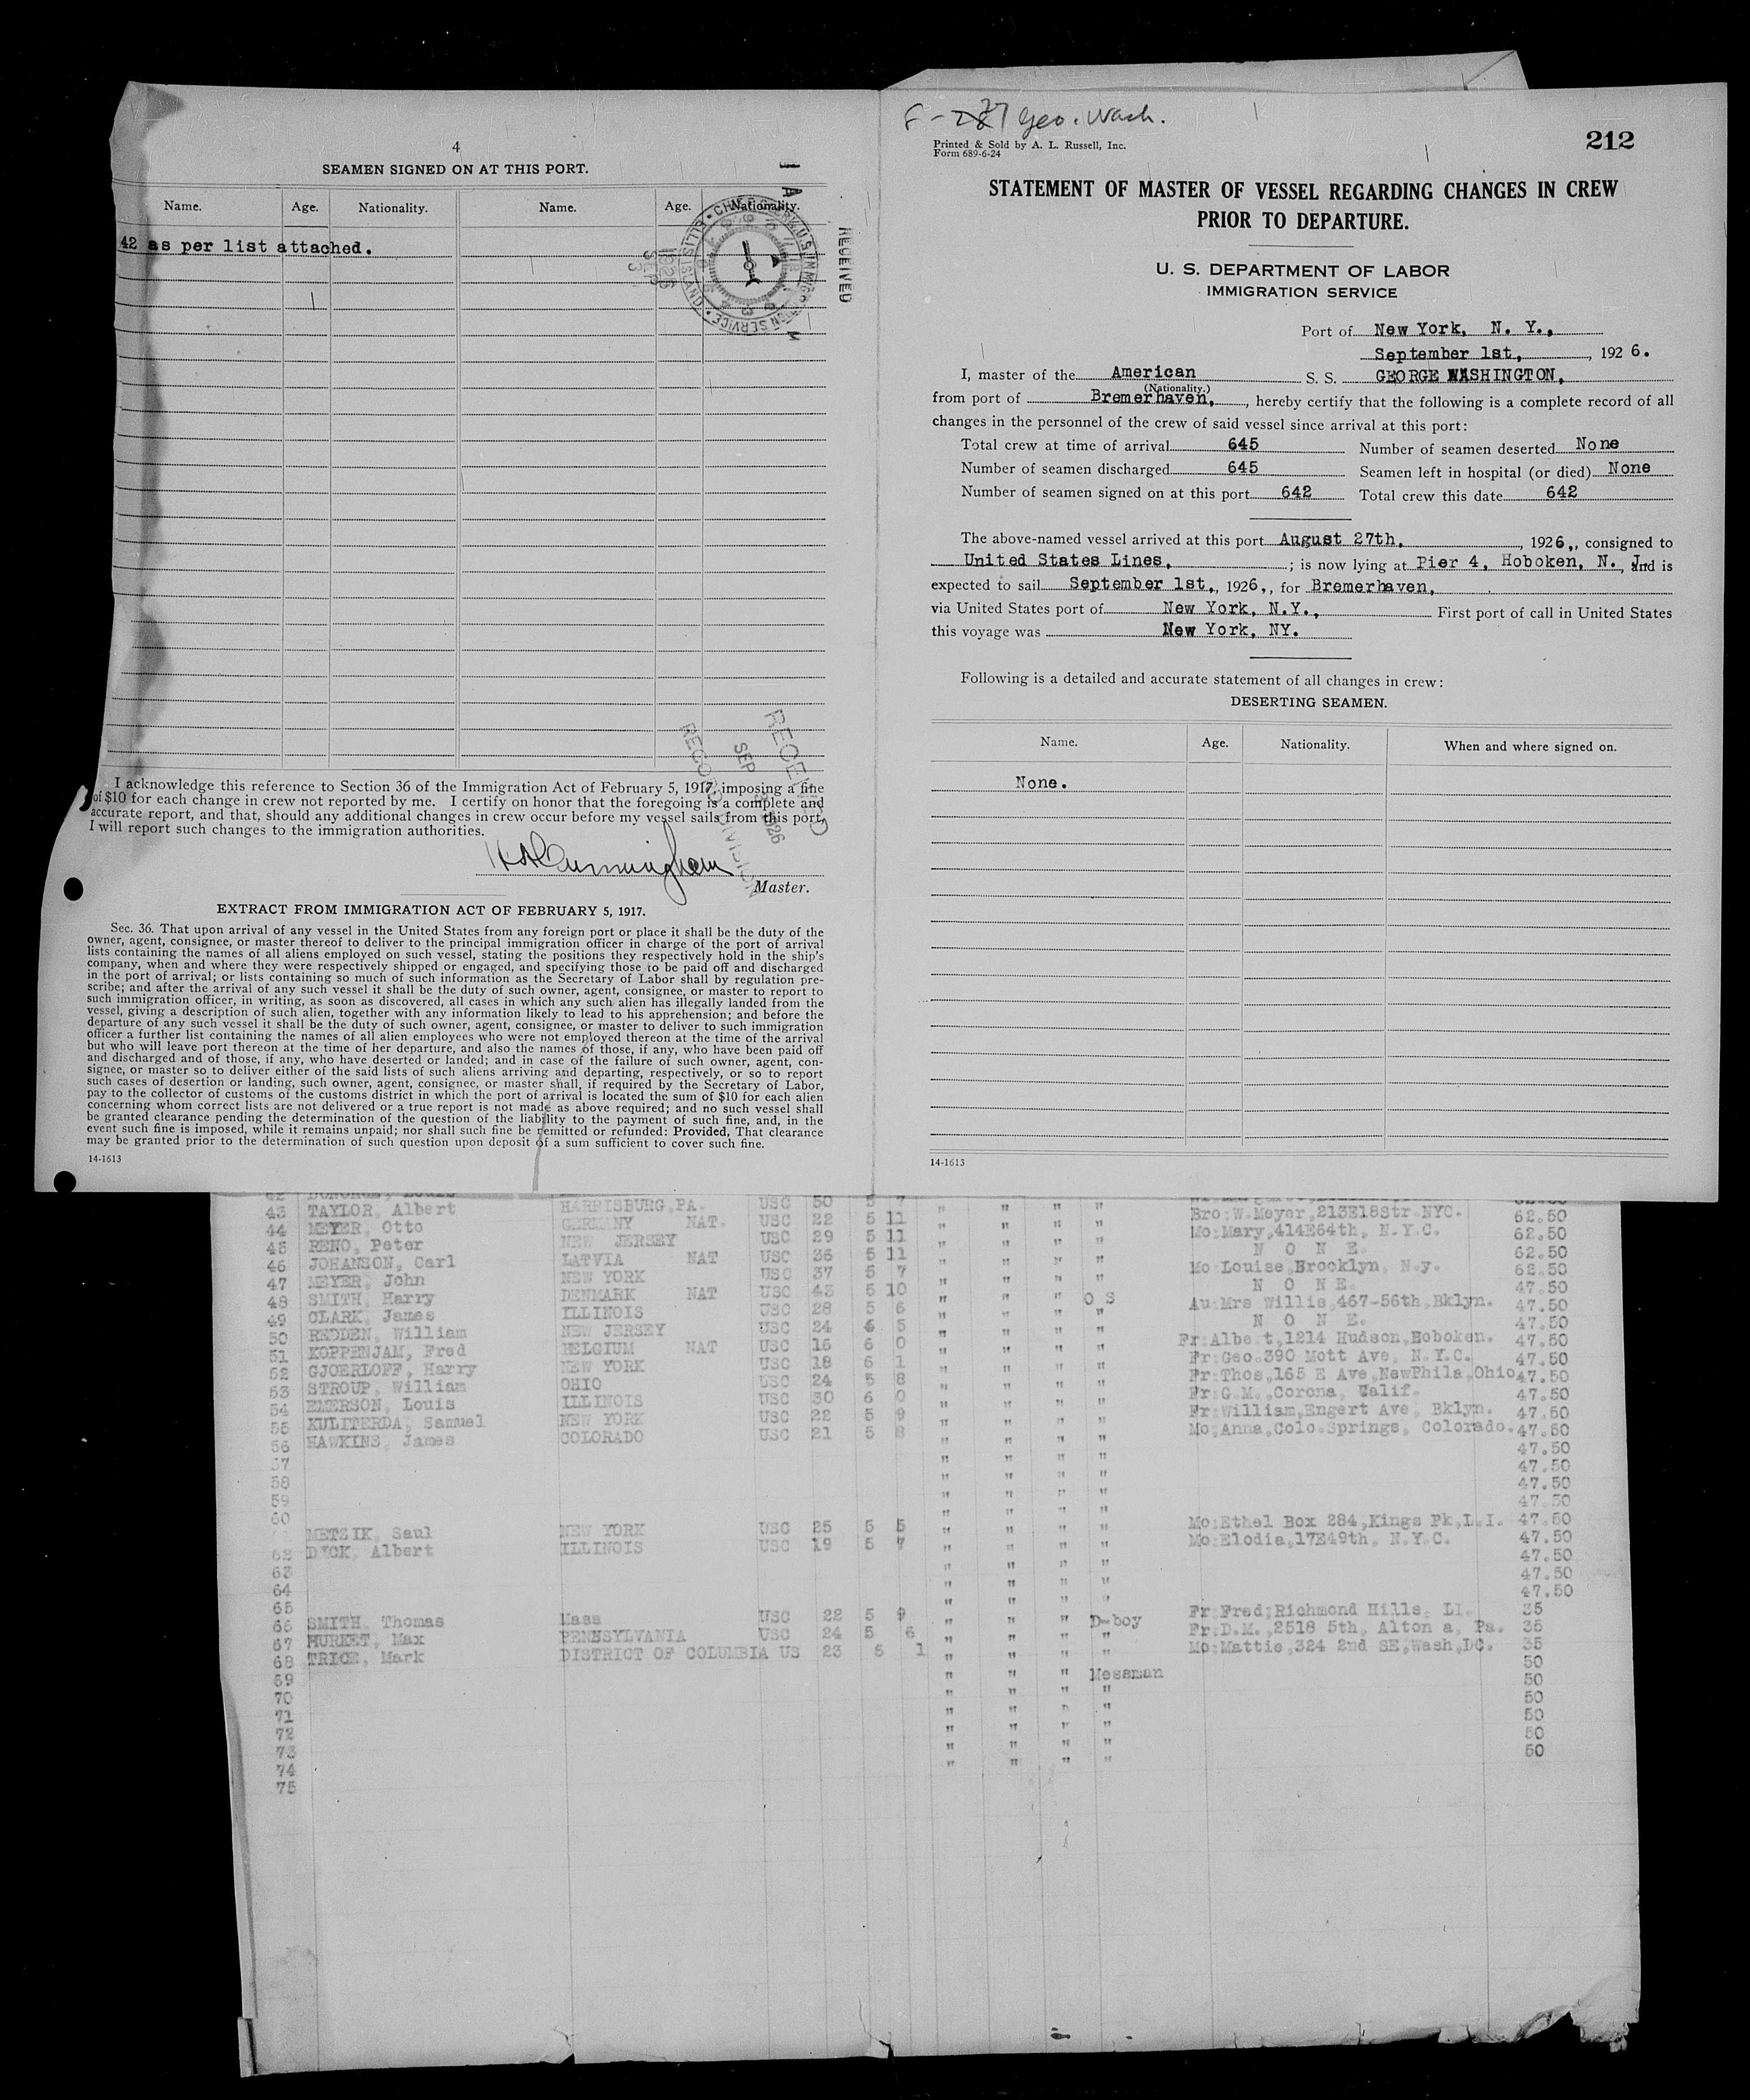 4
SEAMEN SIGNED ON AT THIS PORT.
Name. Age. Nationality. Name. Age. Nationality.
42 as per list attached.
RECEIVED
1926 SEP 3
I acknowledge this reference to Section 36 of the Immigration Act of February 5, 1917, imposing a fine
of $10 for each change in crew not reported by me. I certify on honor that the foregoing is a complete and
accurate report, and that, should any additional changes in crew occur before my vessel sails from this port,
I will report such changes to the immigration authorities.
RECEIVED
SEP 1926
RECORD DIVISION
H A Cunningham
Master.
EXTRACT FROM IMMIGRATION ACT OF FEBRUARY 5, 1917.
Sec. 36. That upon arrival of any vessel in the United States from any foreign port or place it shall be the duty of the
owner, agent, consignee, or master thereof to deliver to the principal immigration officer in charge of the port of arrival
lists containing the names of all aliens employed on such vessel, stating the positions they respectively hold in the ship's
company, when and where they were respectively shipped or engaged, and specifying those to be paid off and discharged
in the port of arrival; or lists containing so much of such information as the Secretary of Labor shall by regulation pre-
scribe; and after the arrival of any such vessel it shall be the duty of such owner, agent, consignee, or master to report to
such immigration officer, in writing, as soon as discovered, all cases in which any such alien has illegally landed from the
vessel, giving a description of such alien, together with any information likely to lead to his apprehension; and before the
departure of any such vessel it shall be the duty of such owner, agent, consignee, or master to deliver to such immigration
officer a further list containing the names of all alien employees who were not employed thereon at the time of the arrival
but who will leave port thereon at the time of her departure, and also the names of those, if any, who have been paid off
and discharged and of those, if any, who have deserted or landed; and in case of the failure of such owner, agent, con-
signee, or master so to deliver either of the said lists of such aliens arriving and departing, respectively, or so to report
such cases of desertion or landing, such owner, agent, consignee, or master shall, if required by the Secretary of Labor,
pay to the collector of customs of the customs district in which the port of arrival is located the sum of $10 for each alien
concerning whom correct lists are not delivered or a true report is not made as above required; and no such vessel shall
be granted clearance pending the determination of the question of the liability to the payment of such fine, and, in the
event such fine is imposed, while it remains unpaid; nor shall such fine be remitted or refunded: Provided, That clearance
may be granted prior to the determination of such question upon deposit of a sum sufficient to cover such fine.
14-1613
Geo. Wash.
Printed & Sold by A. L. Russell, Inc.
Form 689-6-24
212
STATEMENT OF MASTER OF VESSEL REGARDING CHANGES IN CREW
PRIOR TO DEPARTURE.
U. S. DEPARTMENT OF LABOR
IMMIGRATION SERVICE
Port of New York, N. Y.,
September 1st, , 192 6.
I, master of the American S. S. GEORGE WASHINGTON,
(Nationality.)
from port of Bremerhaven, , hereby certify that the following is a complete record of all
changes in the personnel of the crew of said vessel since arrival at this port:
Total crew at time of arrival 645 Number of seamen deserted None
Number of seamen discharged 645 Seamen left in hospital (or died) None
Number of seamen signed on at this port 642 Total crew this date 642
The above-named vessel arrived at this port August 27th, , 1926,, consigned to
United States Lines, ; is now lying at Pier 4, Hoboken, N. J., and is
expected to sail September 1st,, 1926,, for Bremerhaven,
via United States port of New York, N.Y., First port of call in United States
this voyage was New York, NY.
Following is a detailed and accurate statement of all changes in crew:
DESERTING SEAMEN.
Name. Age. Nationality. When and where signed on.
None.
14-1613
43 TAYLOR, Albert HARRISBURG, PA. USC 50 5 7 " " " "
44 MEYER, Otto GERMANY NAT. USC 22 5 11 " " " " Bro:W.Meyer,213E18Str.NYC. 62.50
45 RENO, Peter NEW JERSEY USC 29 5 11 " " " " Mo:Mary,414E64th, N.Y.C. 62.50
46 JOHANSON, Carl LATVIA NAT USC 36 5 11 " " " " N O N E. 62.50
47 MEYER, John NEW YORK USC 37 5 7 " " " " Mo Louise,Brooklyn, N.y. 62.50
48 SMITH, Harry DENMARK NAT USC 43 5 10 " " " " N O N E. 47.50
49 CLARK, James ILLINOIS USC 28 5 6 " " " O S Au:Mrs Willis,467-56th,Bklyn. 47.50
50 REDDEN, William NEW JERSEY USC 24 5 5 " " " " N O N E. 47.50
51 KOPPENJAM, Fred BELGIUM NAT USC 16 6 0 " " " " Fr:Albe t,1214 Hudson,Hoboken. 47.50
52 GJOERLOFF, Harry NEW YORK USC 18 6 1 " " " " Fr:Geo.390 Mott Ave, N.Y.C. 47.50
53 STROUP, William OHIO USC 24 5 8 " " " " Fr:Thos,165 E Ave,NewPhila,Ohio 47.50
54 EMERSON, Louis ILLINOIS USC 30 6 0 " " " " Fr:G.M.,Corona, Calif. 47.50
55 KULITERDA, Samuel NEW YORK USC 22 5 9 " " " " Fr:William,Engert Ave, Bklyn. 47.50
56 HAWKINS, James COLORADO USC 21 5 8 " " " " Mo;Anna,Colo.Springs, Colorado. 47.50
57 " " " " 47.50
58 " " " " 47.50
59 " " " " 47.50
60 " " " " 47.50
METZIK, Saul NEW YORK USC 25 5 5 " " " " Mo:Ethel Box 284,Kings Pk,L.I. 47.50
62 DICK, Albert ILLINOIS USC 19 5 7 " " " " Mo:Elodia,17E49th, N.Y.C. 47.50
63 " " " " 47.50
64 " " " " 47.50
65 " " " " 47.50
66 SMITH, Thomas Mass USC 22 5 9 " " " D-boy Fr:Fred;Richmond Hills, LI. 35
67 HURKET, Max PENNSYLVANIA USC 24 5 6 " " " " Fr:D.M.,2518 5th, Alton a, Pa. 35
68 TRICE, Mark DISTRICT OF COLUMBIA US 23 6 1 " " " " Mo:Mattie,324 2nd SE,Wash,DC. 35
69 " " " Messman 50
70 " " " " 50
71 " " " " 50
72 " " " " 50
73 " " " " 50
74 " " " " 50
75